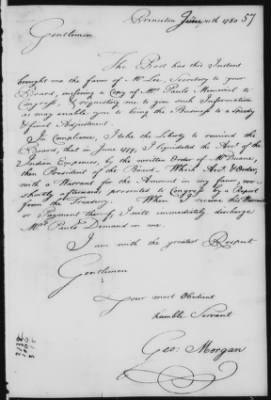 Princeton June 11th 1780 57
Gentlemen
The Post has this Instant
brought me the favor of Mr Lee, Secretary to your
Board, inclosing to Copy of Mr Pauls Memorial to
Congress, & requesting me to give such Information
as may enable you to bring the Business to a speedy
& final Adjustment.
In Compliance, I take the Liberty to remind the
Board, that in June 1779, I liquidated the Acct. of the
Indian Expences, by the written Order of Mr Duane,
then President of the Board. Which Acct. & Order,
with a Warrant for the Amount in my favor, was
shortly afterwards presented to Congress by a Report
from the Treasury. When I receive this Warrant
or Payment thereof, I will immediately discharge
Mr Pauls Demand on me.
I am with the greatest Respect
Gentlemen
Your most Obedient
humble Servant
Geo: Morgan